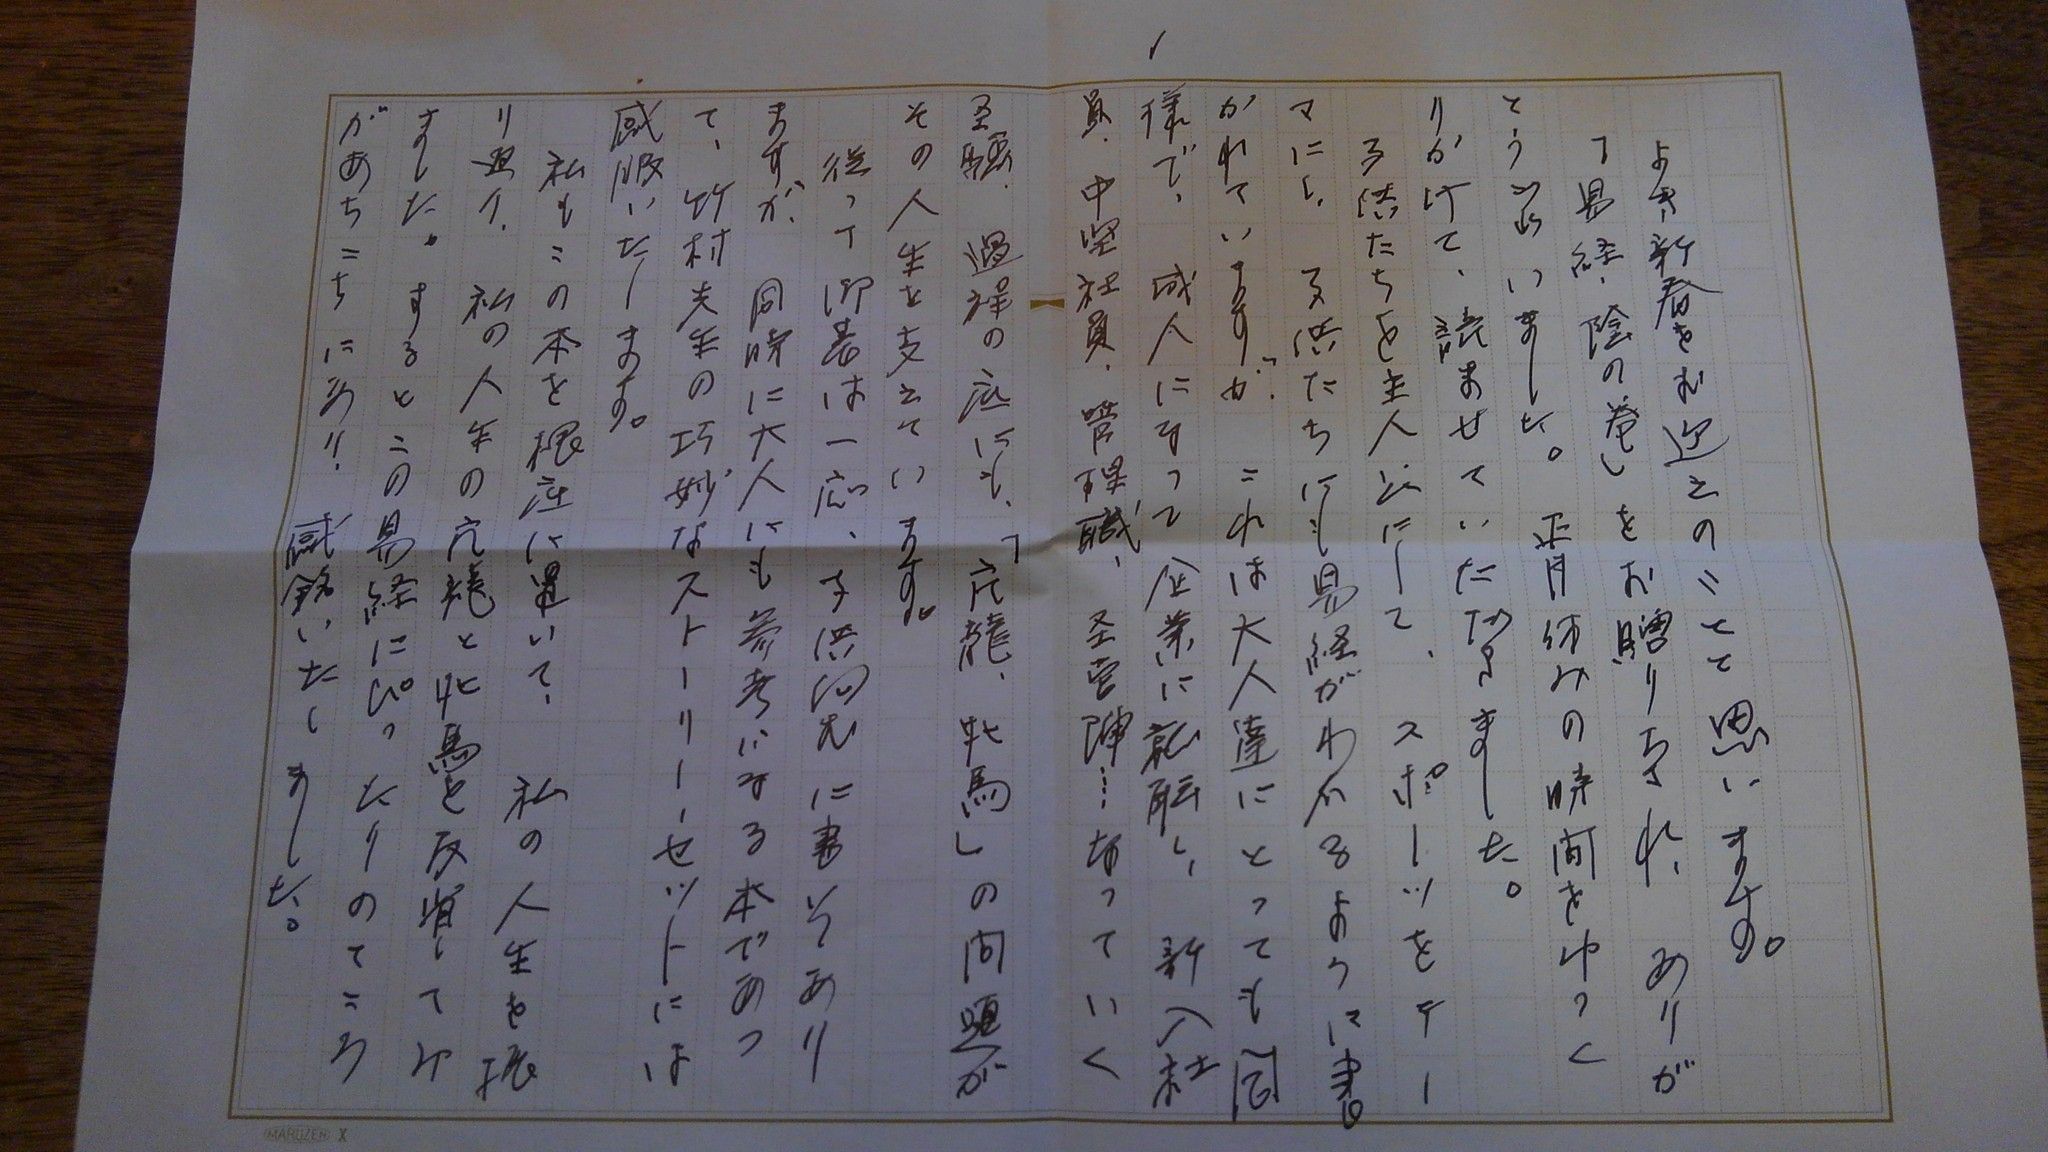 よき新春をお迎えのことと思います。
「易経・陰の巻」をお贈り下され、ありが
とうございました。正月休みの時間をゆっく
りかけて、読ませていただきました。
子供たちを主人公にして、スポーツをテー
マにし、子供たちにも易経がわかるように書
かれていますが、これは大人達にとっても同
様で、成人になって企業に就職し、新入社
員、中堅社員、管理職、経営陣…なっていく
段階、過程の底にも、「亢龍、牝馬」の問題が
その人生を支えています。
従って御著は一応、子供向きに書いてあり
ますが、同時に大人にも参考になる本であっ
て、竹村先生の巧妙なストーリーセットには
感服いたします。
私もこの本を根底に置いて、私の人生を振
り返り、私の人生の亢龍と牝馬を反省してみ
ました。するとこの易経にぴったりのところ
があちこちにあり、感銘いたしました。
MARUZEN X